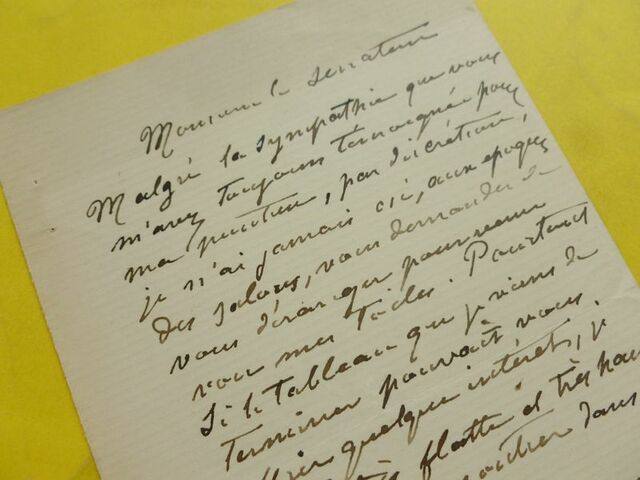 Monsieur le Senateur
Malgré la sympathie que vous
m'avez toujours témoignée pour
ma peinture, par discrétion,
je n'ai jamais osé, aux époques
des salons, vous demander de
vous déranger pour venir
voir mes toiles. Pourtant
si le tableau que je viens de
terminer pouvait vous
offrir quelque intérêt, je
flatté et très
dans